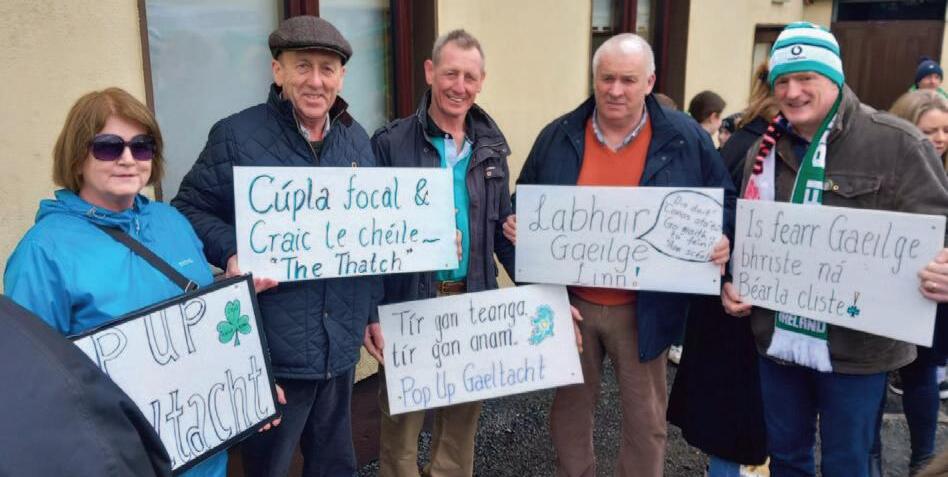 P UP
ltacht
Cúpla focal &
Craic le chéile ~
"The Thatch"
Tír gan teanga,
tír gan anam.
Pop Up Gaeltacht
Labhair
Gaeilge
Linn!
Go maith
Is fearr Gaeilge
bhriste ná
Béarla cliste!
IRELAND